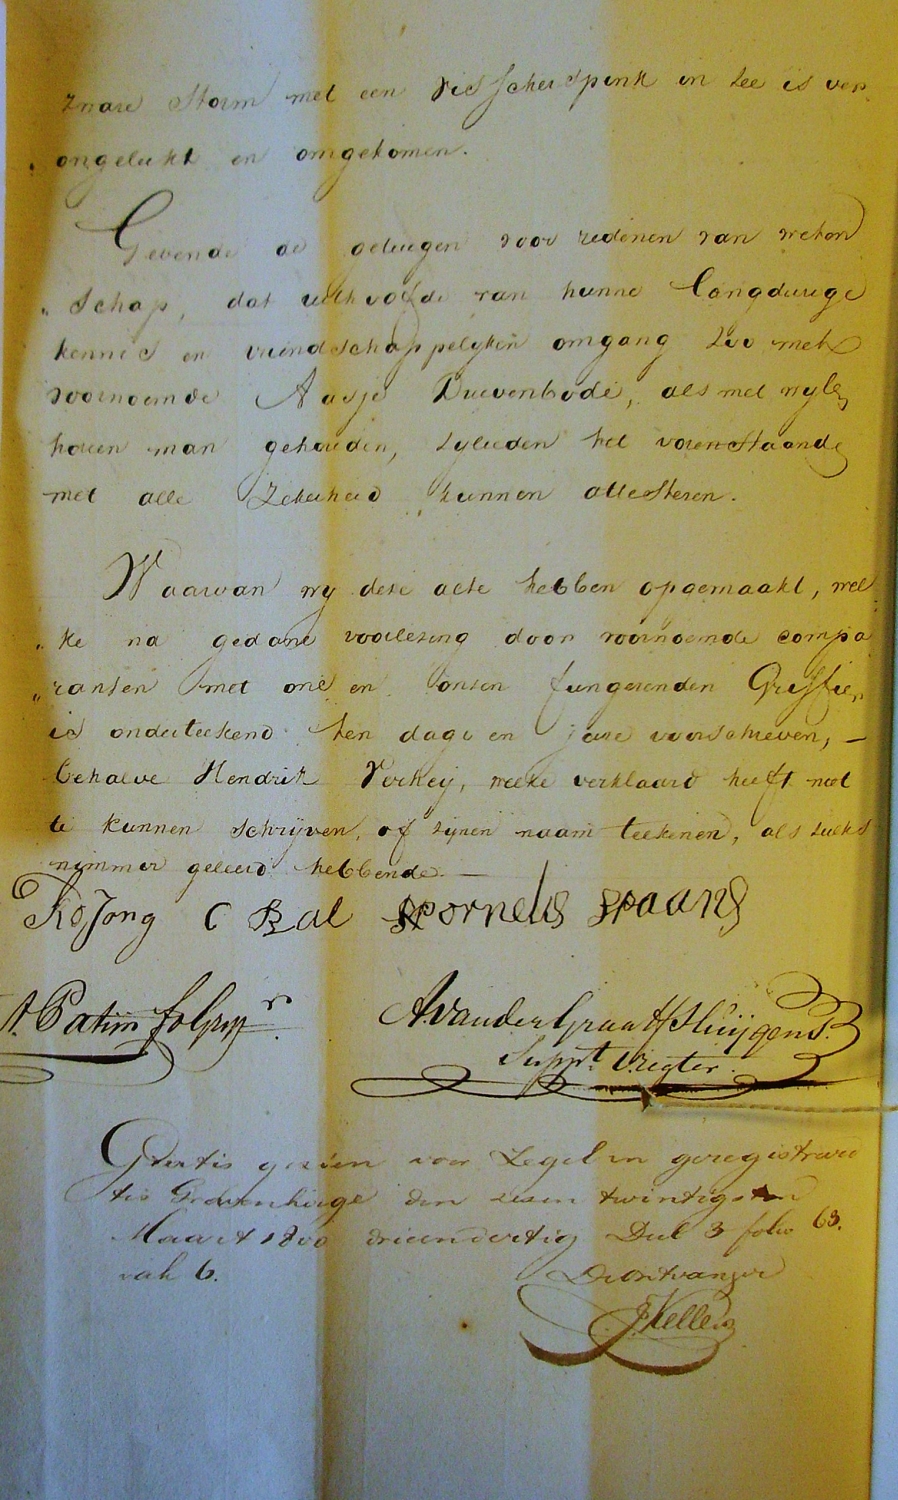 zware Storm met een visscherspink in Zee is ver
„ongelukt en omgekomen.
Gevende de getuigen voor redenen van weten
„schap, dat uit hoofde van hunne langdurige
kennis en vriendschappelyken omgang zoo met
voornoemde Aasje Duivenbode, als met wylen
haren man gehouden, zylieden het vorenstaande
met alle Zekerheid kunnen attesteren.
Waarvan wy deze acte hebben opgemaakt, wel
„ke na gedane voorlezing door voornoemde compa
„ranten met ons en onzen fungerenden Griffier
is onderteekend ten dage en jare voorschreven, —
behalve Hendrik Verheij, welke verklaard heeft niet
te kunnen schrijven, of zijnen naam teekenen, als zulks
nimmer geleerd hebbende. —
K D Jong C Bal Kornelis Spaans
A. Patijn fo Grijfr.
A. van der Graaff Huijgens.
Supplt. Vregter.
Gratis gezien voor Zegel en geregistreerd
te s Gravenhage den zesen twintigsten
Maart 1800 drieendertig Deel 3 folio 63.
vak 6. De Ontvanger